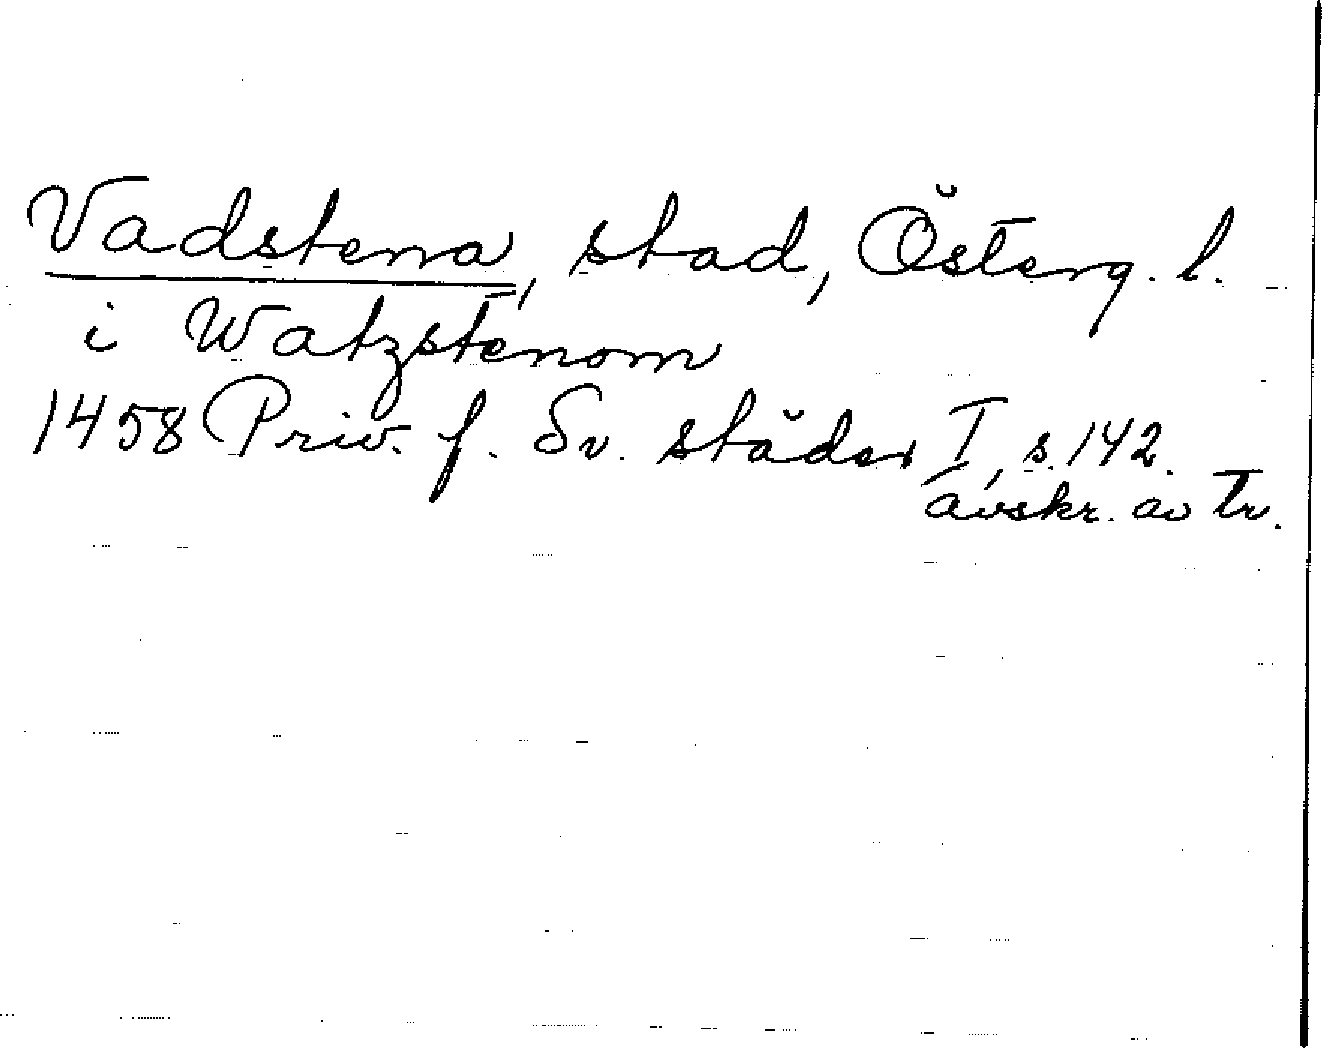 Vadstena, stad, Österg. l.
i Watzstenom
1458 Priv. f. Sv. städer I, s. 142.
avskr. av Tr.